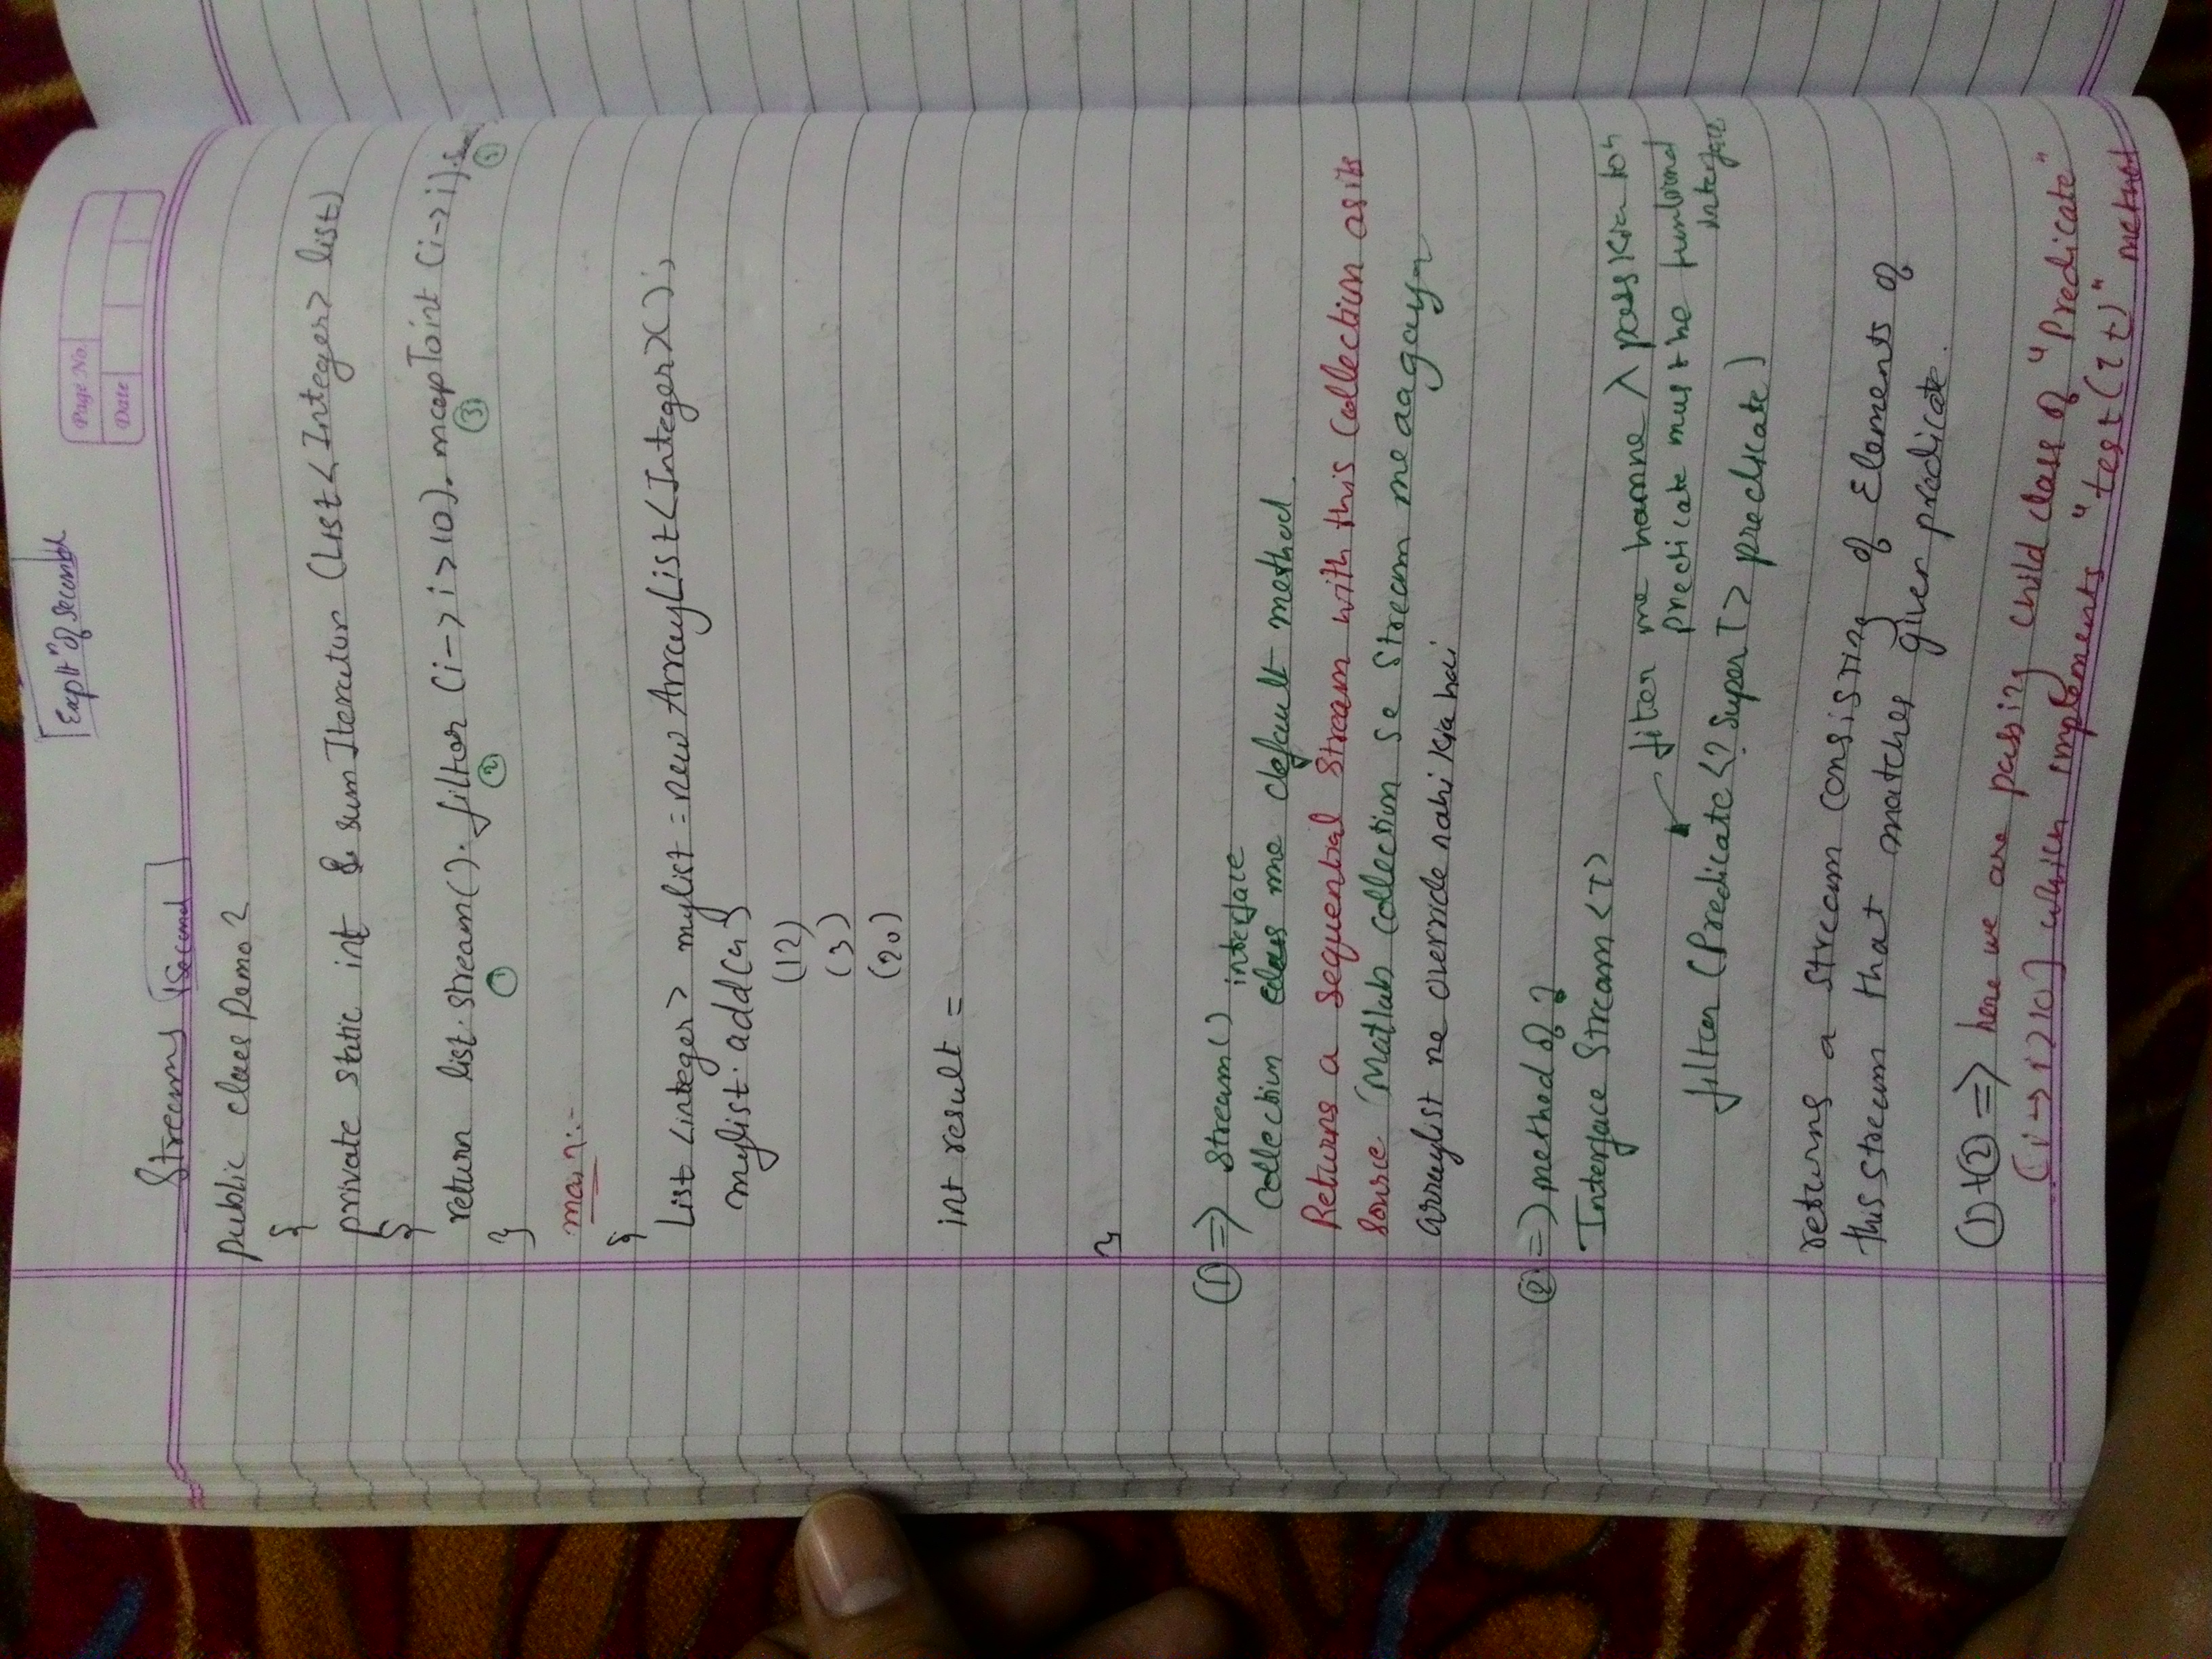 Explt^n of Second
Page No.
Date
Streams Second
public class Demo2
{
private static int sumIterator (List<Integer> list)
{
return list.stream().filter (i->i>10).mapToint (i->i).
① ② ③
}
main:-
{
List <integer> mylist = new ArrayList<Integer>();
mylist.add(4)
(12)
(3)
(20)
int result =
}
① => stream() interface
Collection class me default method.
Returns a sequential stream with this Collection as its
source (Matlab collection se stream me aagaya
arraylist ne override nahi kia hai
② => method of ?
Interface Stream <T>
fiter me hamne λ pass kia to
predicate must be
interface
filter (Predicate <? Super T> predicate)
returns a stream consisting of Elements of
this stream that matches given predicate.
①+② => here we are passing child class of "Predicate"
[i->i>10] which implements "test(T t)" method